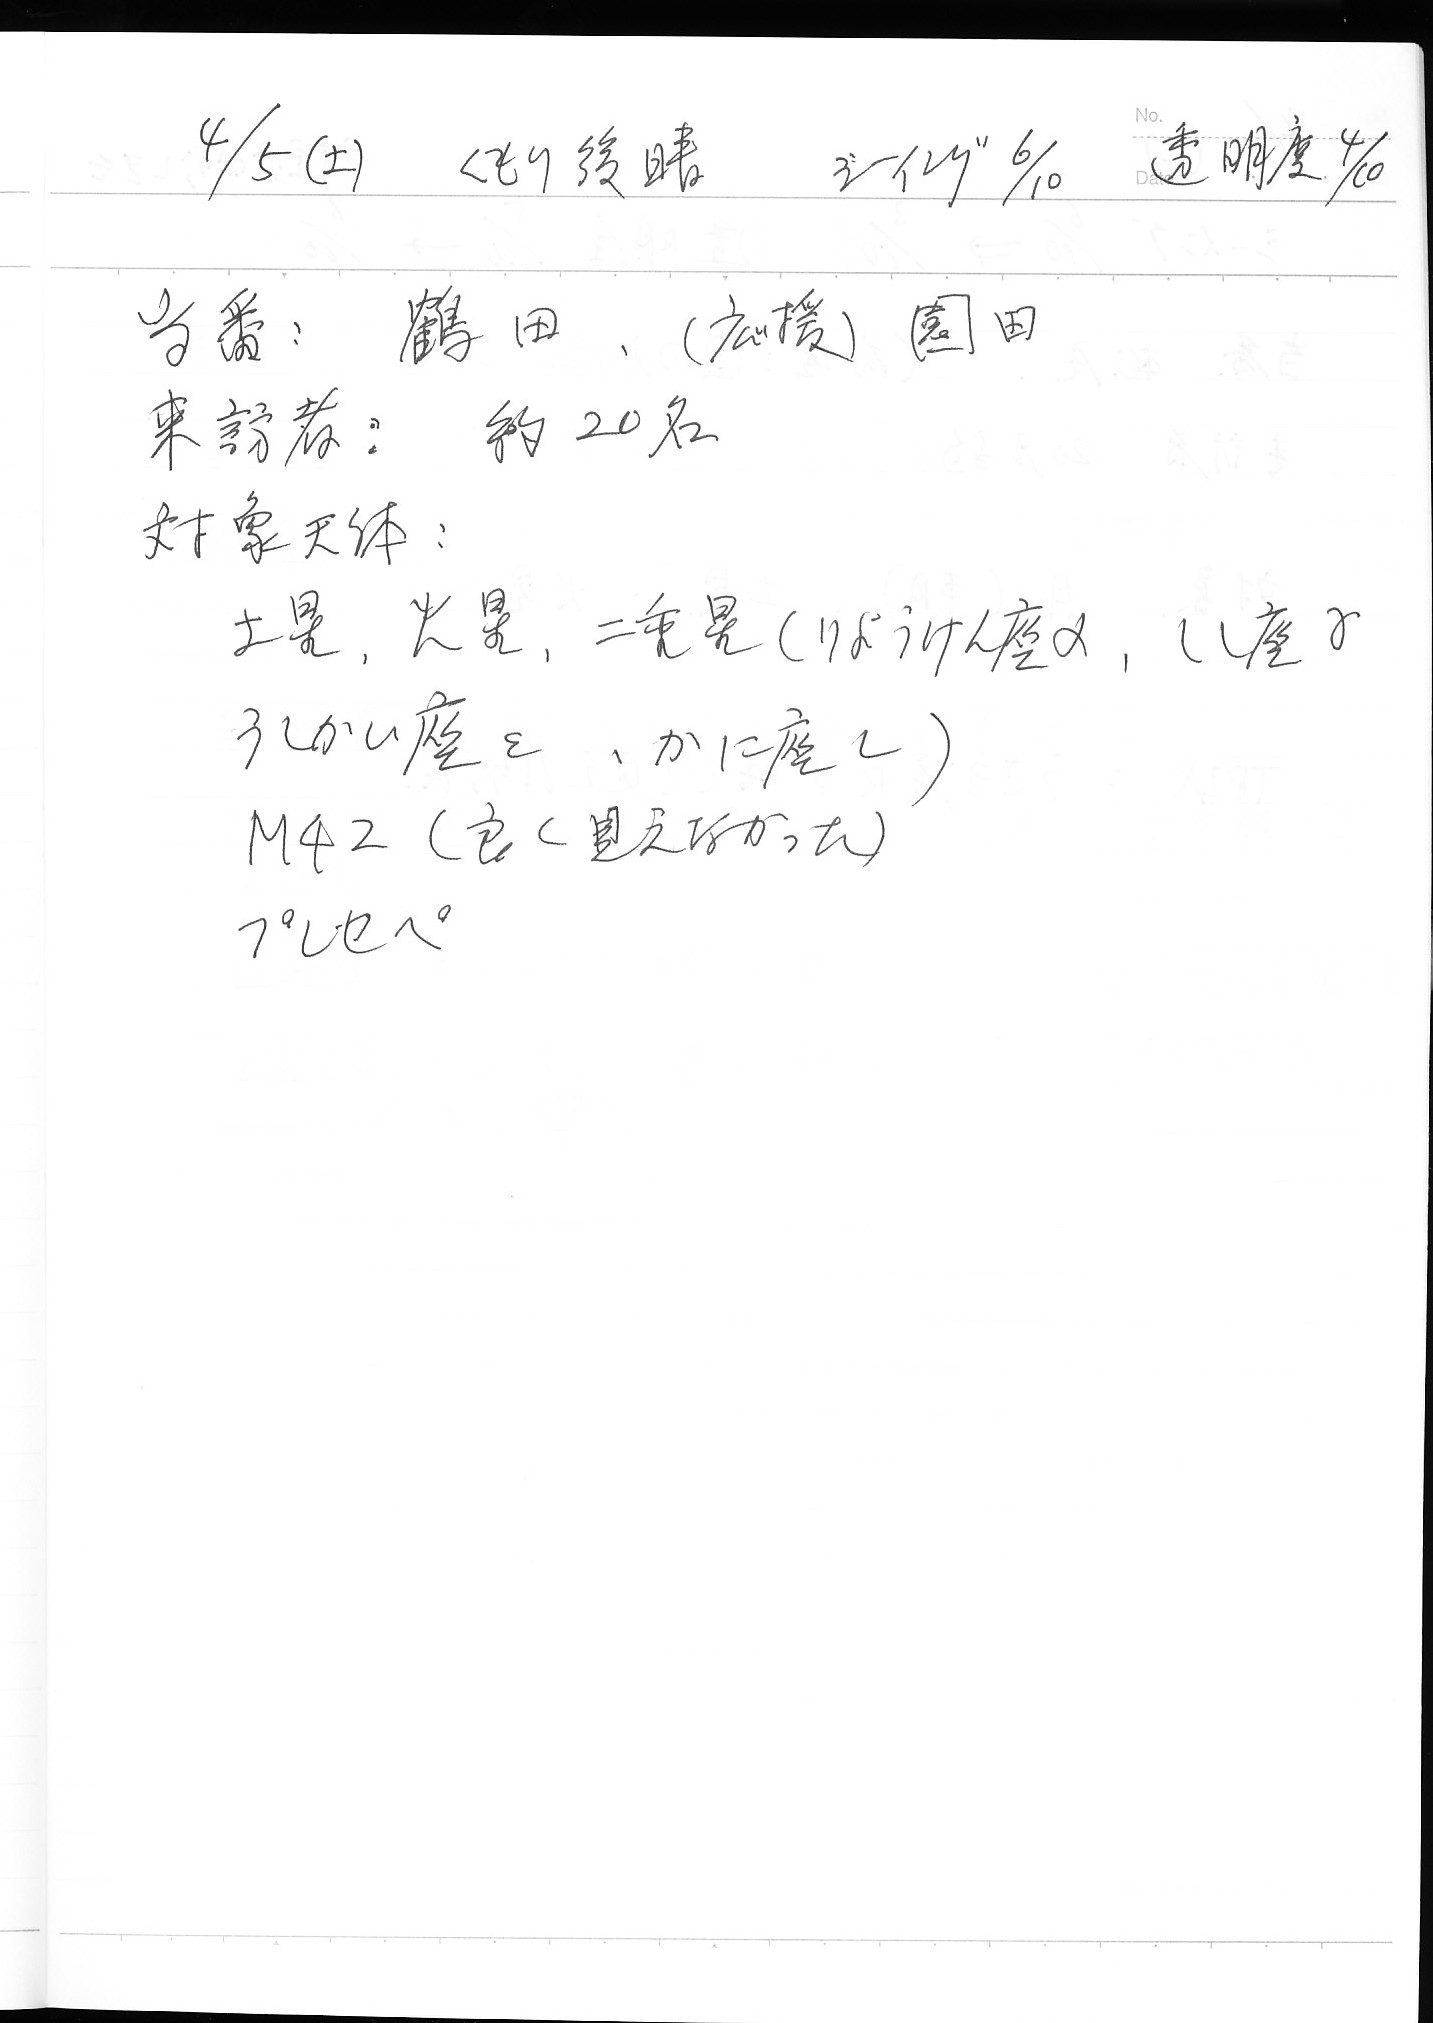 No.
Date
4/5(土) くもり後晴 シーイング 6/10 透明度 4/10
当番: 鶴田、(応援) 園田
来訪者: 約20名
対象天体:
土星, 火星, 二重星 (りょうけん座α, しし座γ
うしかい座ε 、かに座ι)
M42 (良く見えなかった)
プレセペ